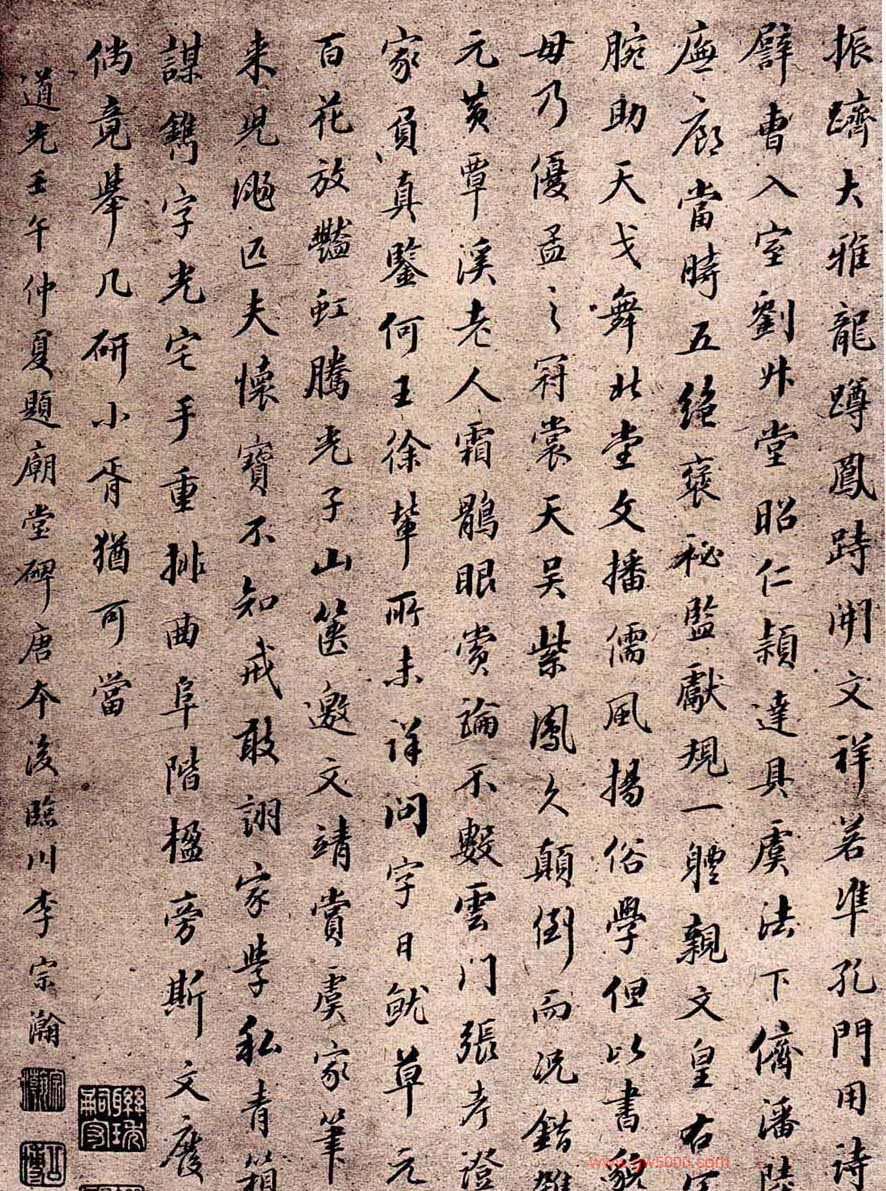 振躋大雅龍蹲鳳跱開文祥若準孔門用詩
譬曹入室劉升堂昭仁穎達具虞法下儕潘陸
廡廊當時五絕褒秘監獻規一體親文皇右軍
腕助天戈舞北堂文播儒風揚俗學但以書貌
毋乃優孟之冠裳天吳紫鳳久顛倒而況錯雜
元黃覃溪老人霜鶻眼賞論不數雲門張考證
家負真鑒何王徐輩所未詳問字日就草元
百花放豔虹騰光子山篋邀文靖賞虞家筆
来匹夫懷寶不知戒敢詡家學私青箱
謀鐫字光宅手重排曲阜階楹旁斯文廢
倘竟舉几研小胥猶可當
道光壬午仲夏題廟堂碑唐本後臨川李宗瀚
宗瀚
聯琇嗣守
公博